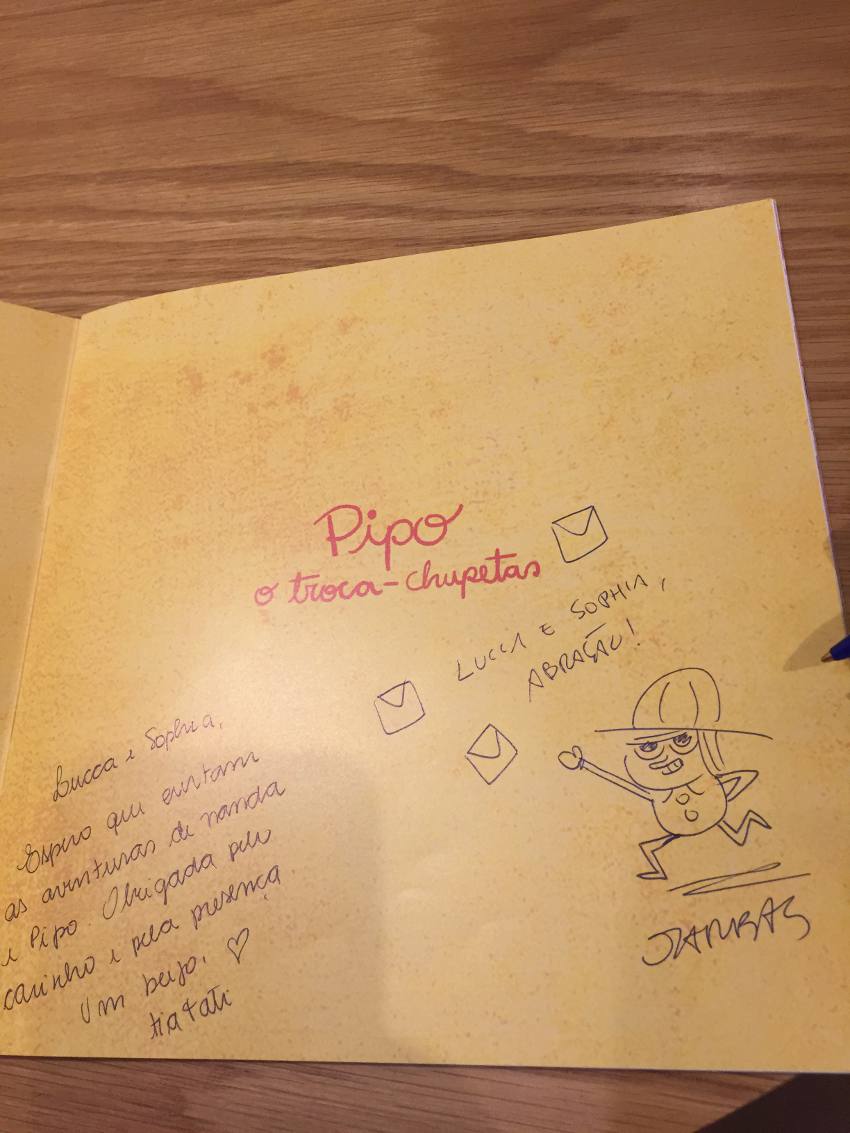 Pipo
o troca-chupetas
LUCCA E SOPHIA,
ABRAÇÃO!
Lucca e Sophia,
Espero que curtam
as aventuras de nanda
e Pipo. Obrigada pelo
carinho e pela presença
Um beijo. ♡
tia Tati
JARBAS